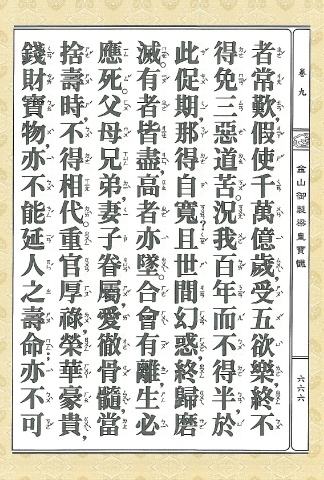 卷九
金山御製梁皇寶懺
六六六
者常歎，假使千萬億歲，受五欲樂，終不
得免三惡道苦。況我百年而不得半，於
此促期，那得自寬？且世間幻惑，終歸磨
滅。有者皆盡，高者亦墜。合會有離，生必
應死。父母兄弟，妻子眷屬，愛徹骨髓，當
捨壽時，不得相代。重官厚祿，榮華豪貴，
錢財寶物，亦不能延人之壽命；亦不可